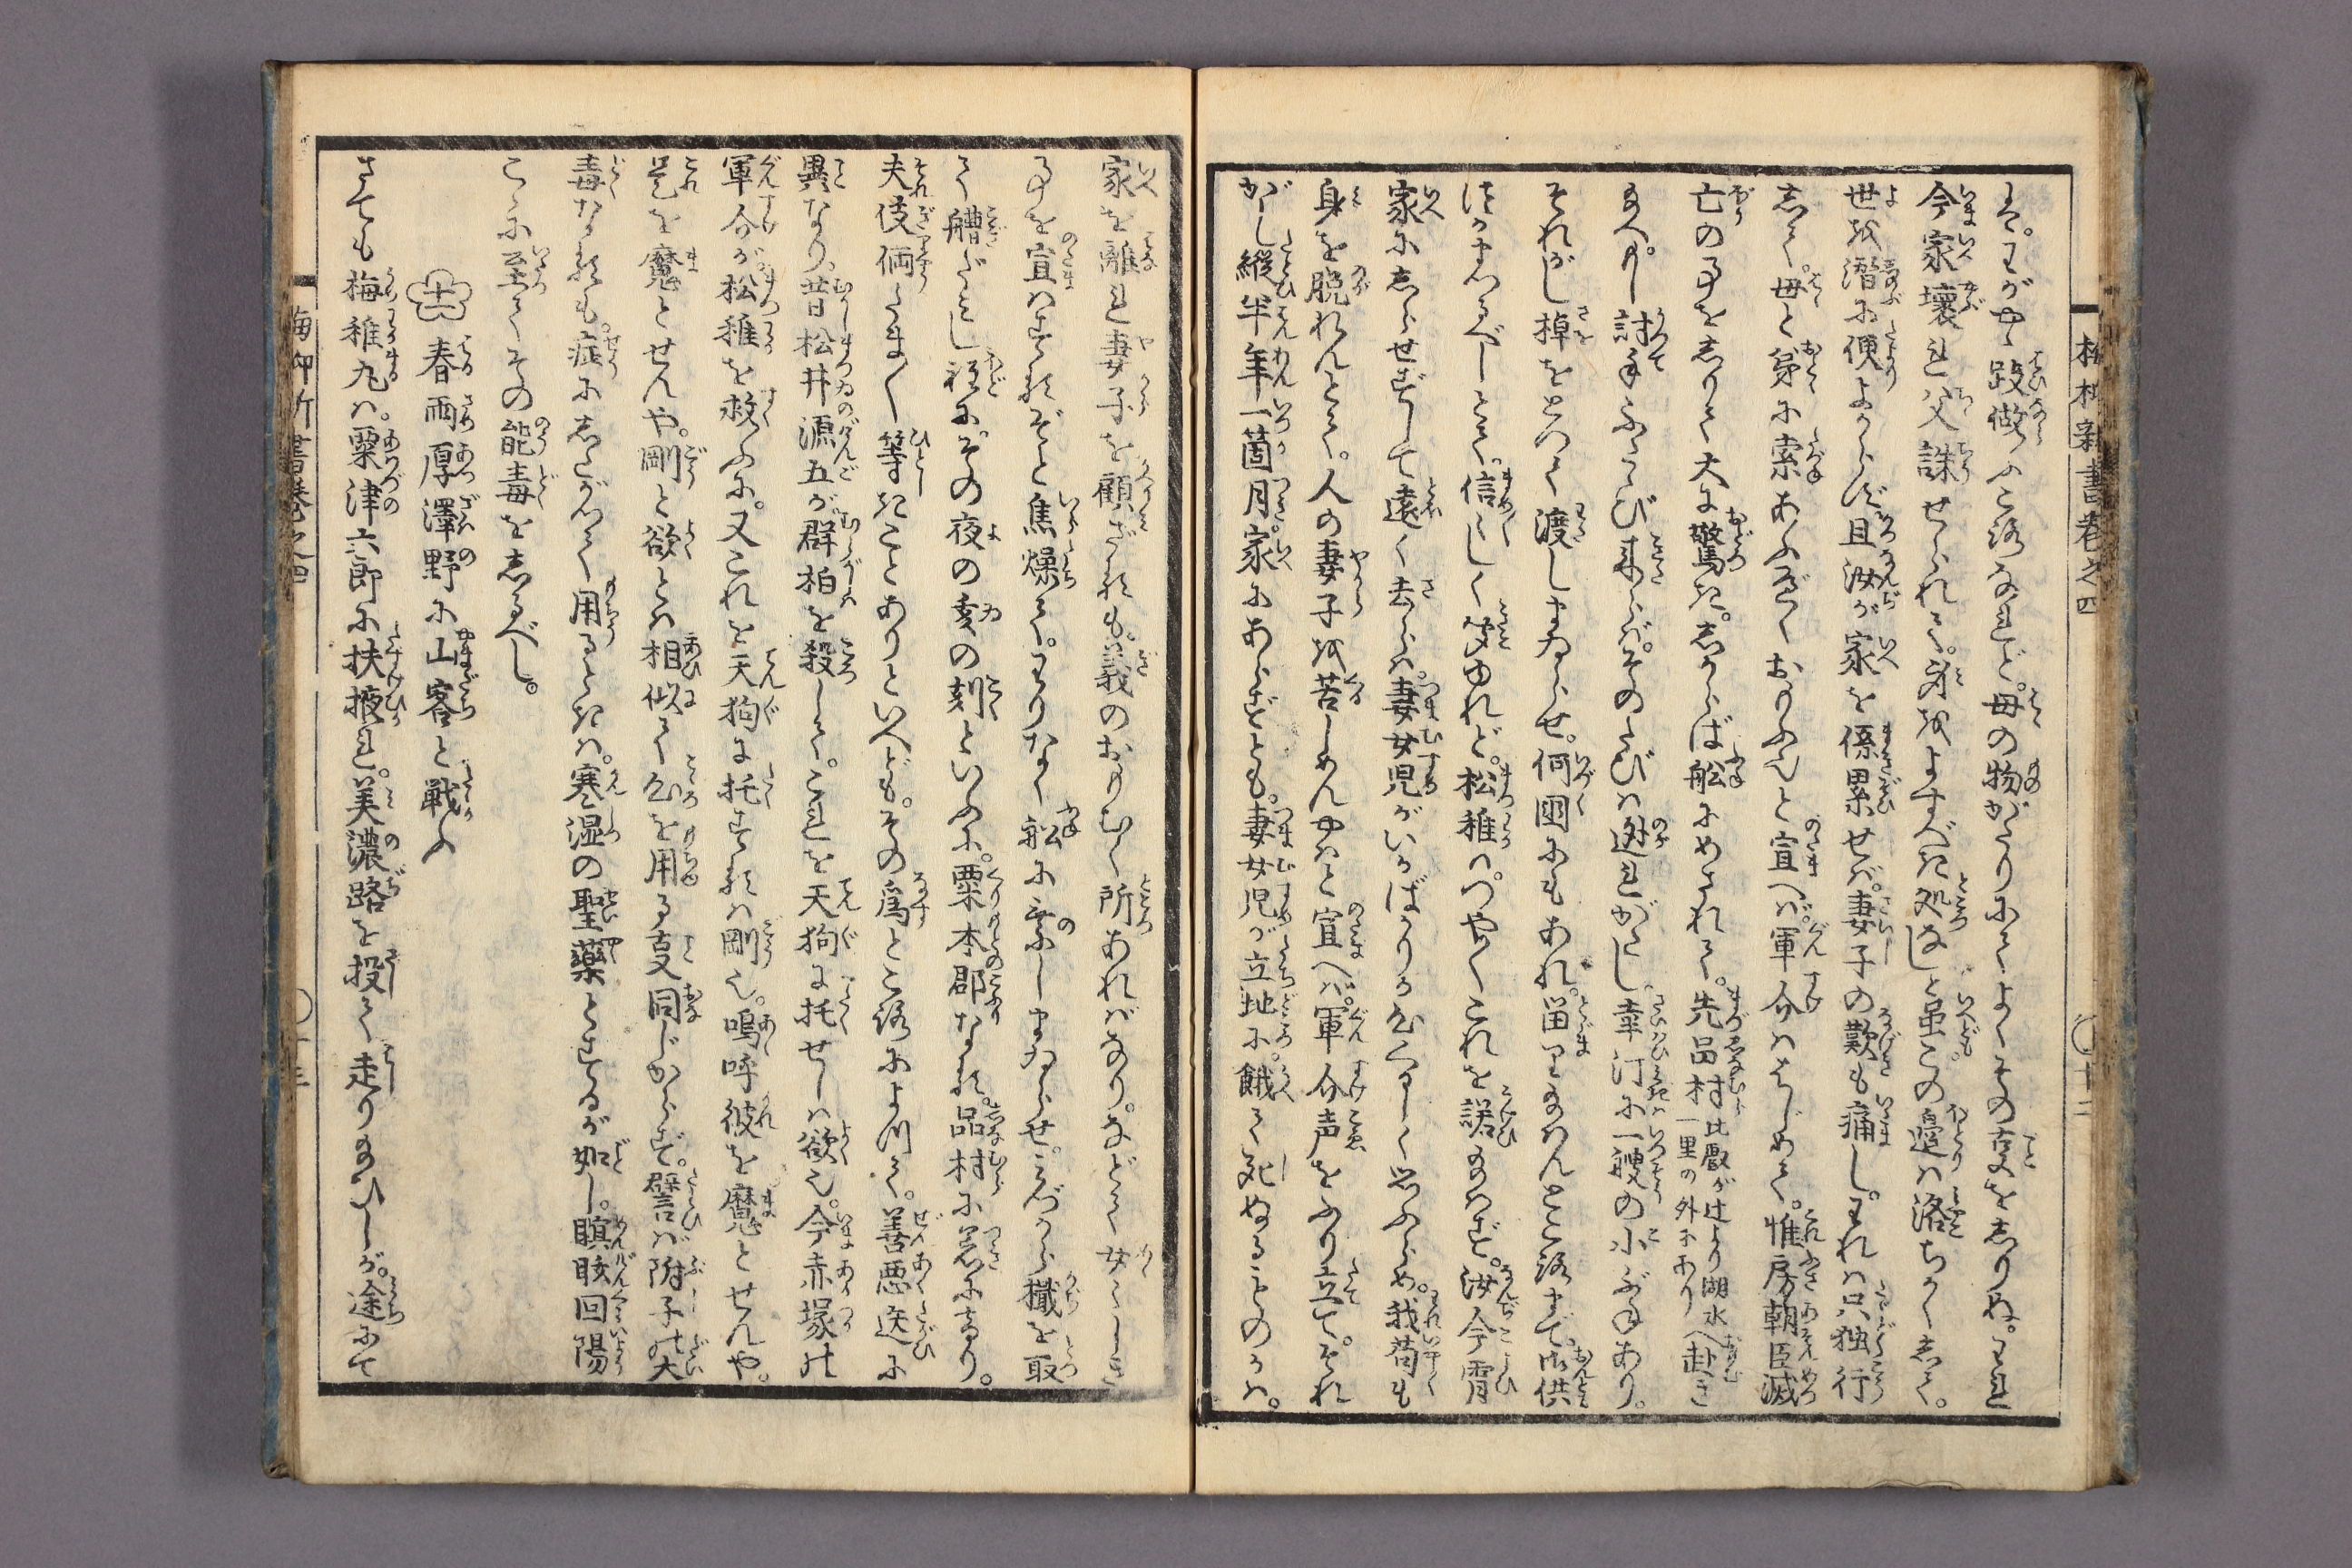 は。わがやゝ跂做ふころなれど。母の物がたりにてよくその㕝をしりぬ。われ
今家壊れ父誅せられて。身をよすべき処なしと虽この邉は洛ちかくして。
世を潜に便よからず且汝が家を係累せば。妻子の歎も痛し。われは只独行
して。母と弟に索あふべくおもふ也と宣へば。軍介ははじめて。惟房朝臣滅
亡の事をしりて大に驚き。しからば舩にめされて。先品村比叡が辻より湖水一里の外にありへ赴き
給へかし討手ふたゝび来らば。そのたびは迯れがたし。幸汀に一艘の小ぶねあり。
それがし棹をとつて渡しまゐらせ。何國にもあれ。畄り給はんところまで。御供
つかまつるべしとて。信しく聞ゆれど。松稚はつや〳〵これを諾給はず。汝今宵
家にしらせずして遠く去らば。妻女児がいかばかりか心くるしく思ふらめ。我苟も
身を脱れんとて。人の妻子を苦しめんやはと宣へば。軍介声をふり立て。それ
がし縦半年一箇月。家にあらずとも。妻女児が立地に。餓て死ぬることのかは。
家を離れ妻子を顧ざるも。義のおもむく所あればなり。などて女〳〵しき
事を宣はするぞと焦燥て。わりなく舩に乗しまゐらせ。みづから檝を取
て艚だせし程に。その夜の亥の刻といふに。粟本郡なる。品村に着にけり。
夫伎倆たま〳〵等きことありといへども。その爲ところによつて。善悪迭に
異なり。昔松井源五が群柏を殺して。これを天狗に托せしは欲也。今赤塚の
軍介が。松稚を救ふに。又これを天狗に托するは剛也。嗚呼彼を魔とせんや。
是を魔とせんや。剛と欲とは相似て心を用る㕝同じからず。譬ば附子の大
毒なるも。症にしたがつて用るときは。寒湿の聖薬とするが如し。瞑眩回陽
こゝに至てその能毒をしるべし。
十一　春雨厚澤野に山客と戦ふ
さても梅稚丸は。粟津六郎に扶掖れ。美濃路を投て走り給ひしが。途にて